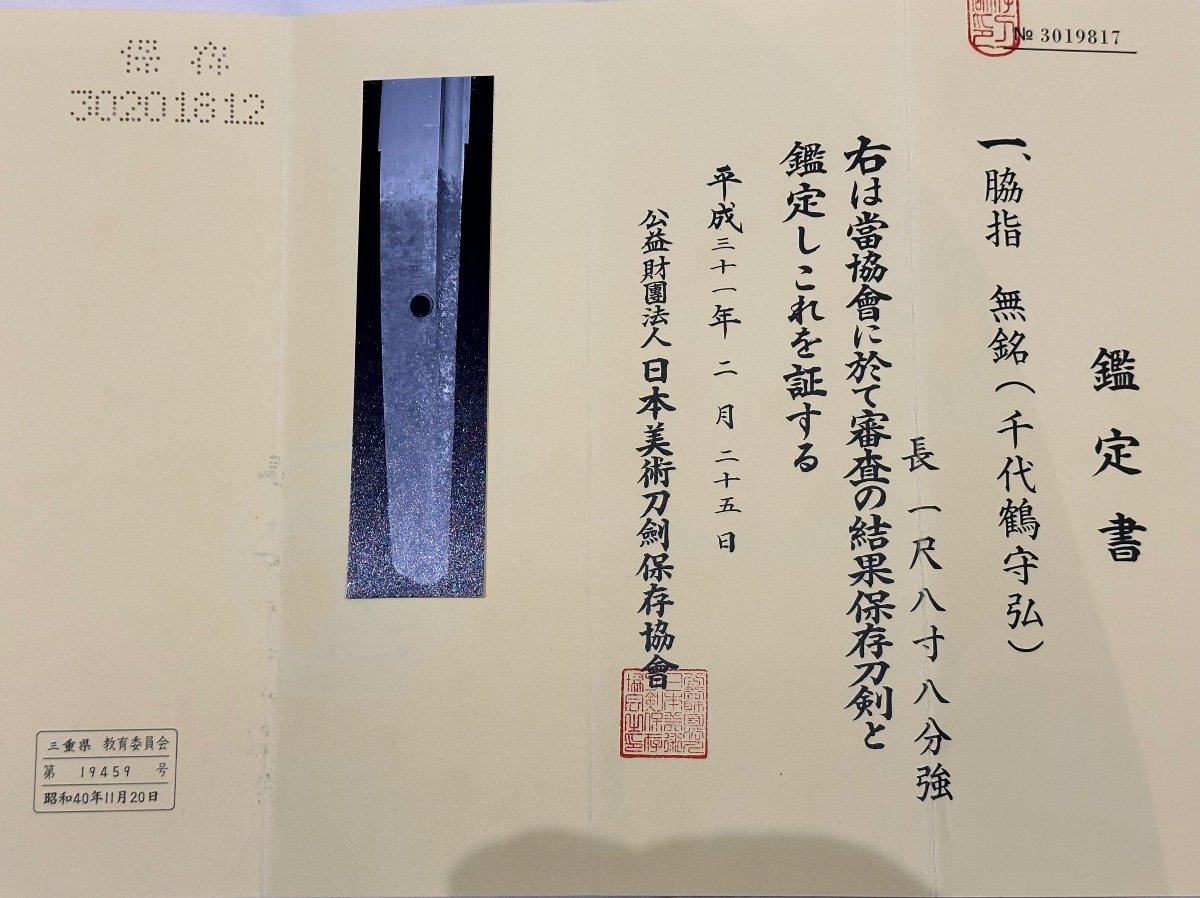 № 3019817
鑑定書
一、脇指 無銘(千代鶴守弘)
長 一尺八寸八分強
右は當協會に於て審査の結果保存刀剣と
鑑定しこれを証する
平成三十一年 二 月 二十五 日
公益財團法人 日本美術刀劍保存協會
保存
30201812
三重県 教育委員会
第 19459 号
昭和40年11月20日